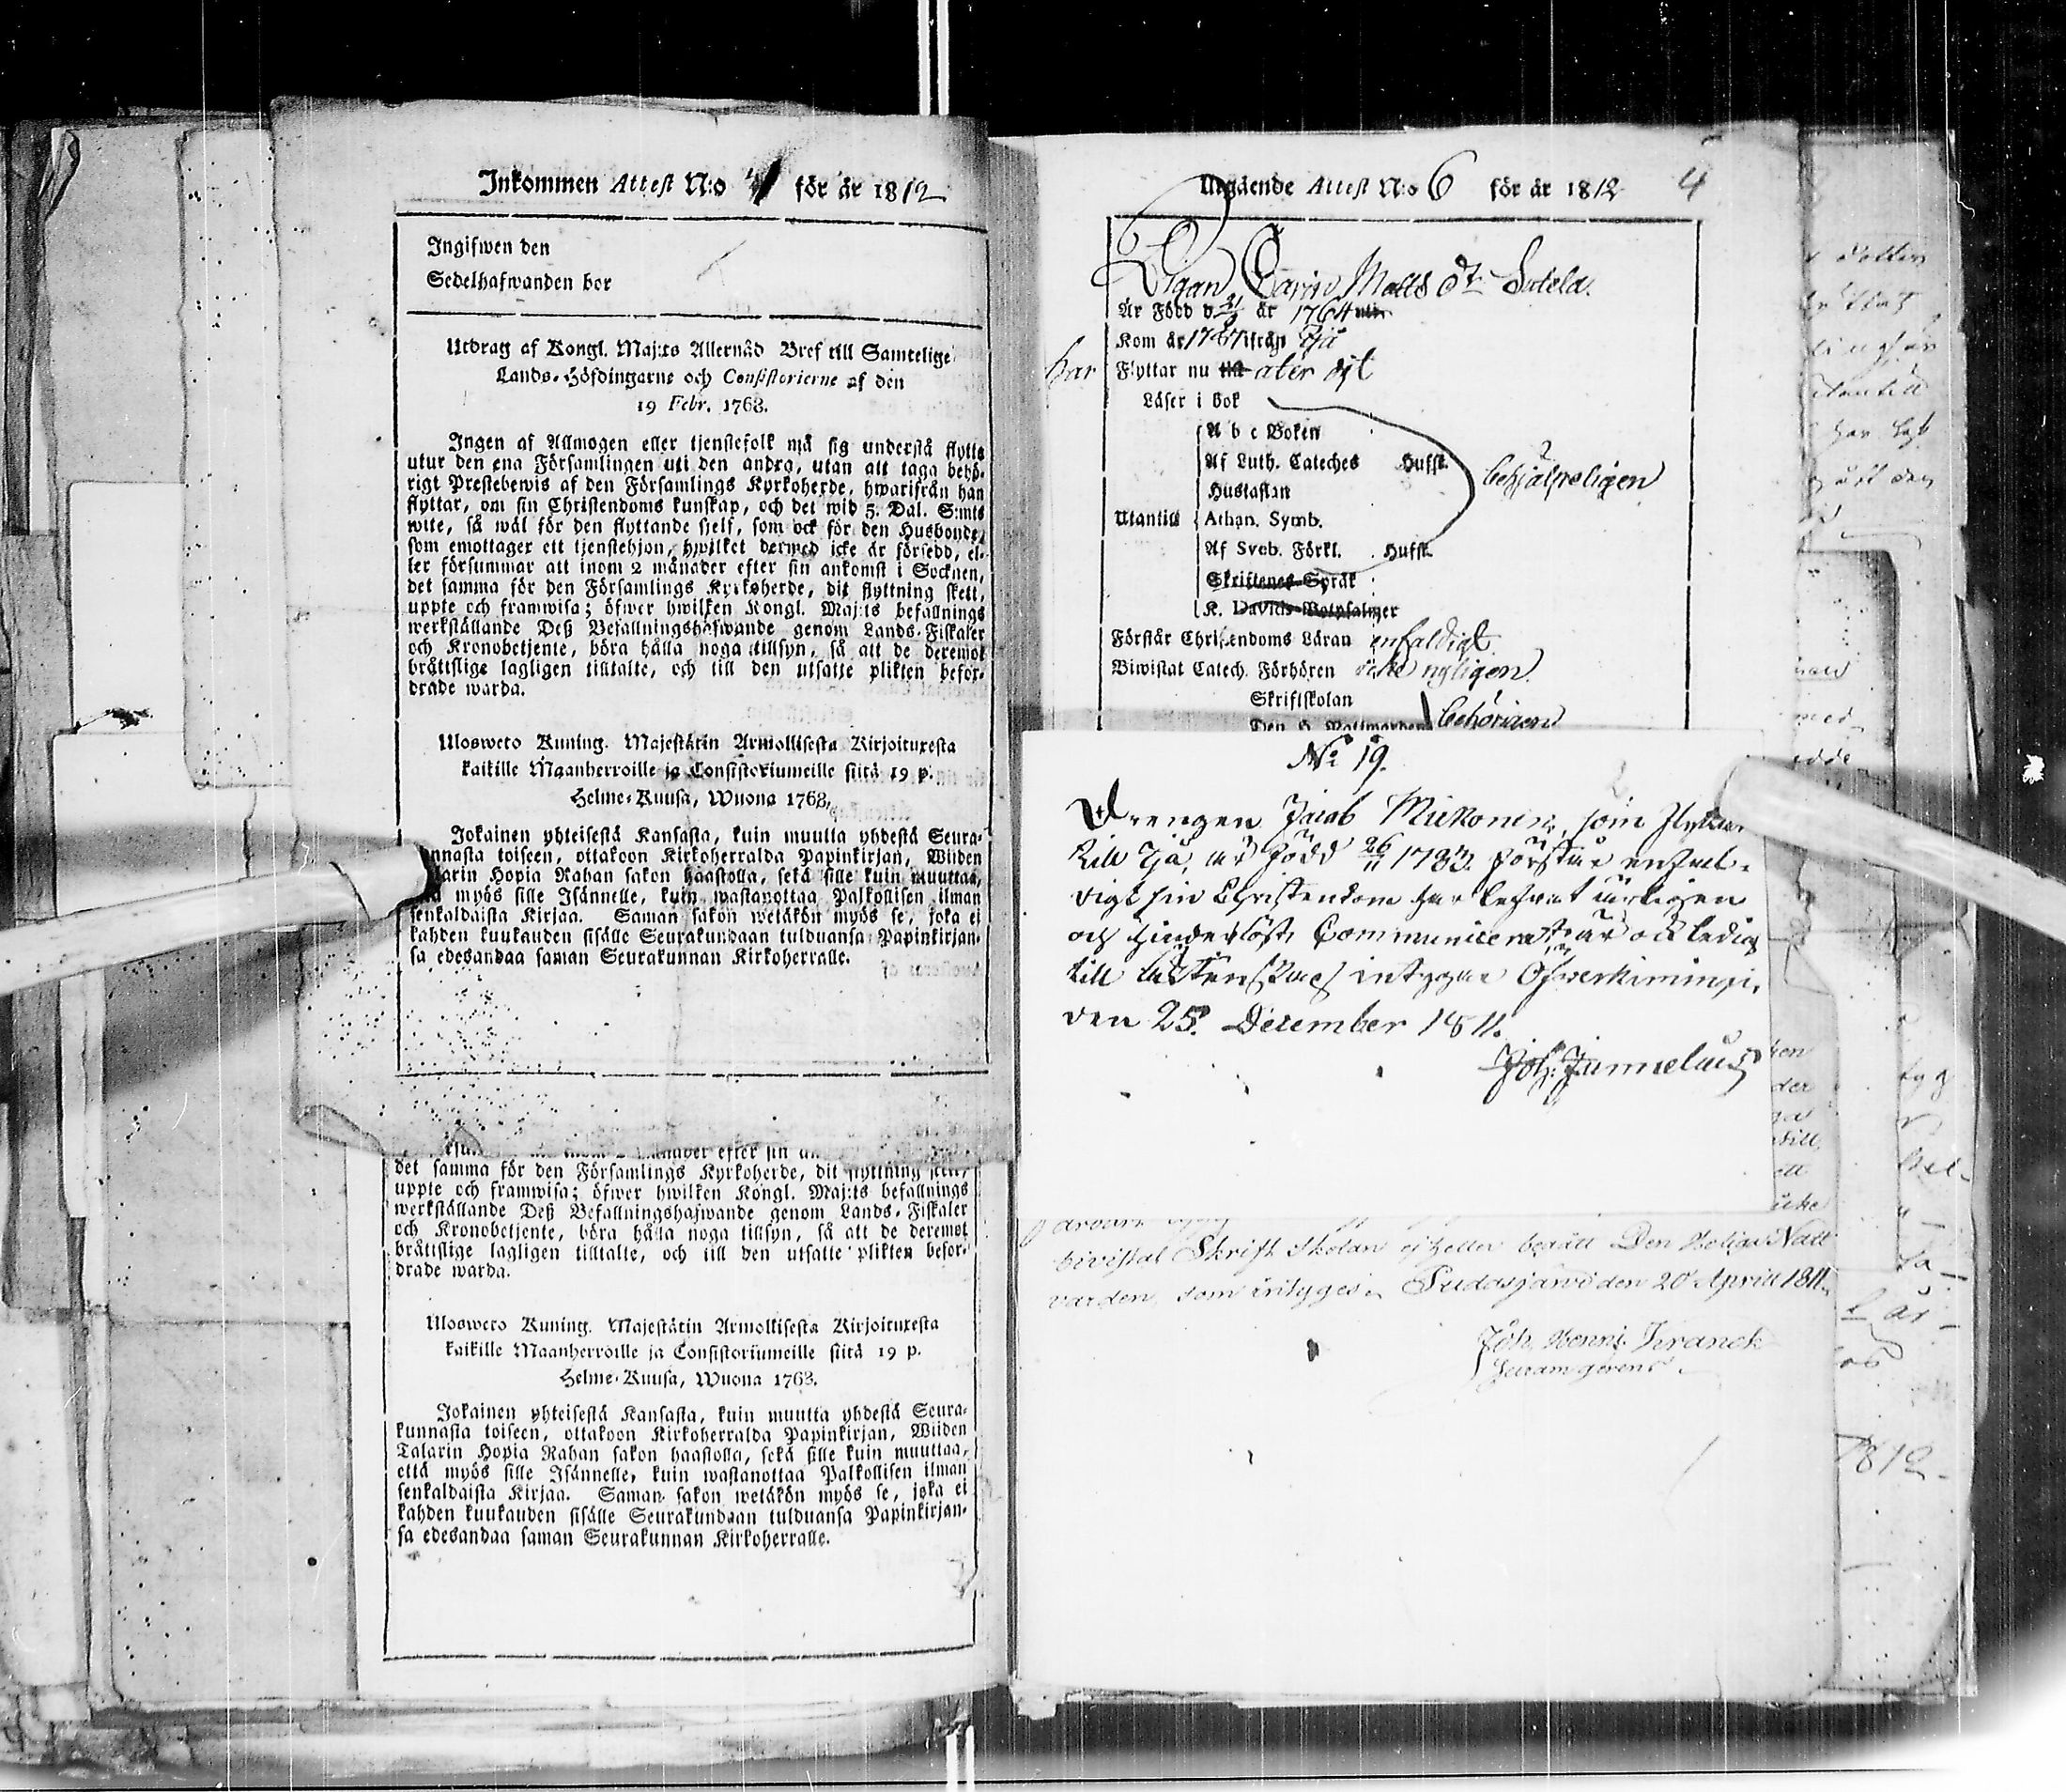 Inkommen Attest N:o för år 1812
Ingifwen den
Sedelhafwanden bor
Utdrag af Kongl. Maj:ts Allernåd Bref till Samtelige
Lands-Höfdingarne och Consistorierne af den
19 Febr. 1763.
Ingen af Allmogen eller tjenstefolk må sig understå flytta
utur den ena Församlingen uti den andra, utan att taga behö-
rigt Prestebewis af den Församlings Kyrkoherde, hwarifrån han
flyttar, om sin Christendoms kunskap, och det wid 5. Dal. S:mts
wite, så wäl för den flyttande sjelf, som ock för den Husbonde,
som emottager ett tjenstehjon, hwilket dermed icke är försedd, el-
ler försummar att inom 2 månader efter sin ankomst i Socknen,
det samma för den Församlings Kyrkoherde, dit flyttning skett,
uppte och framwisa; öfwer hwilken Kongl. Maj:ts befallnings
werkställande Deß Befallningshafwande genom Lands-Fiskaler
och Kronobetjente, böra hålla noga tillsyn, så att de deremot
bråttslige lagligen tilltalte, och till den utsatte plikten befor-
drade warda.
Ulosweto Kuning. Majestätin Armollisesta Kirjoituxesta
kaikille Maanherroille ja Consistoriumeille siitä 19 p.
Helme-Kuusa, Wuona 1763.
Jokainen yhteisestä Kansasta, kuin muutta yhdestä Seura-
nnasta toiseen, ottakoon Kirkoherralda Papinkirjan, Wiiden
larin Hopia Rahan sakon haastolla, sekä sille kuin muuttaa,
myös sille Isännelle, kuin wastanottaa Palkollisen ilman
senkaldaista Kirjaa. Saman sakon wetäkön myös se, joka ei
kahden kuukauden sisälle Seurakundaan tulduansa Papinkirjan-
sa edesandaa saman Seurakunnan Kirkoherralle.
månader efter sin
det samma för den Församlings Kyrkoherde, dit flyttning skett,
uppte och framwisa; öfwer hwilken Kongl. Maj:ts befallnings
werkställande Deß Befallningshafwande genom Lands-Fiskaler
och Kronobetjente, böra hålla noga tillsyn, så att de deremot
bråttslige lagligen tilltalte, och till den utsatte plikten befor-
drade warda.
Ulosweto Kuning. Majestätin Armollisesta Kirjoituxesta
kaikille Maanherroille ja Consistoriumeille siitä 19 p.
Helme-Kuusa, Wuona 1763.
Jokainen yhteisestä Kansasta, kuin muutta yhdestä Seura-
kunnasta toiseen, ottakoon Kirkoherralda Papinkirjan, Wiiden
Talarin Hopia Rahan sakon haastolla, sekä sille kuin muuttaa,
että myös sille Isännelle, kuin wastanottaa Palkollisen ilman
senkaldaista Kirjaa. Saman sakon wetäkön myös se, joka ei
kahden kuukauden sisälle Seurakundaan tulduansa Papinkirjan-
sa edesandaa saman Seurakunnan Kirkoherralle.
Utgående Attest N:o 6 för år 1812 4
Pigan Carin Matts dr Sutela.
Är Född d 21/9 år 1764
Kom år 1787 ifrån Ijå
har Flyttar nu till åter dit
Läser i Bok
A b c Boken
Af Luth. Cateches Hufst.
Hustaflan
behjälpeligen
Utantill Athan. Symb.
Af Sveb. Förkl. Hufst.
Skriftenes Språk
K. Davids Botpsalmer
Förstår Christendoms Läran enfaldigt
Biwistat Catech. Förhören icke nyligen
Skriftskolan
Den H. Nattwarden behörigen
No 19.
Drengen Jacob Mickonen, som flyttar
till Ijå, är född 26/11 1783. förstår enfal-
digt sin Christendom har lefwat ärligen
och hinderlöst Communicerat är ock ledig
till ägtenskap intygar Öfwerkiminki,
den 25. December 1811.
Joh. Jammelius
bivistat Skrift Skolan ej heller begått Den Helige Natt
varden, som intygas. Pudasjärvi den 20 April 1811.
Joh. Henr. Franck
1812.